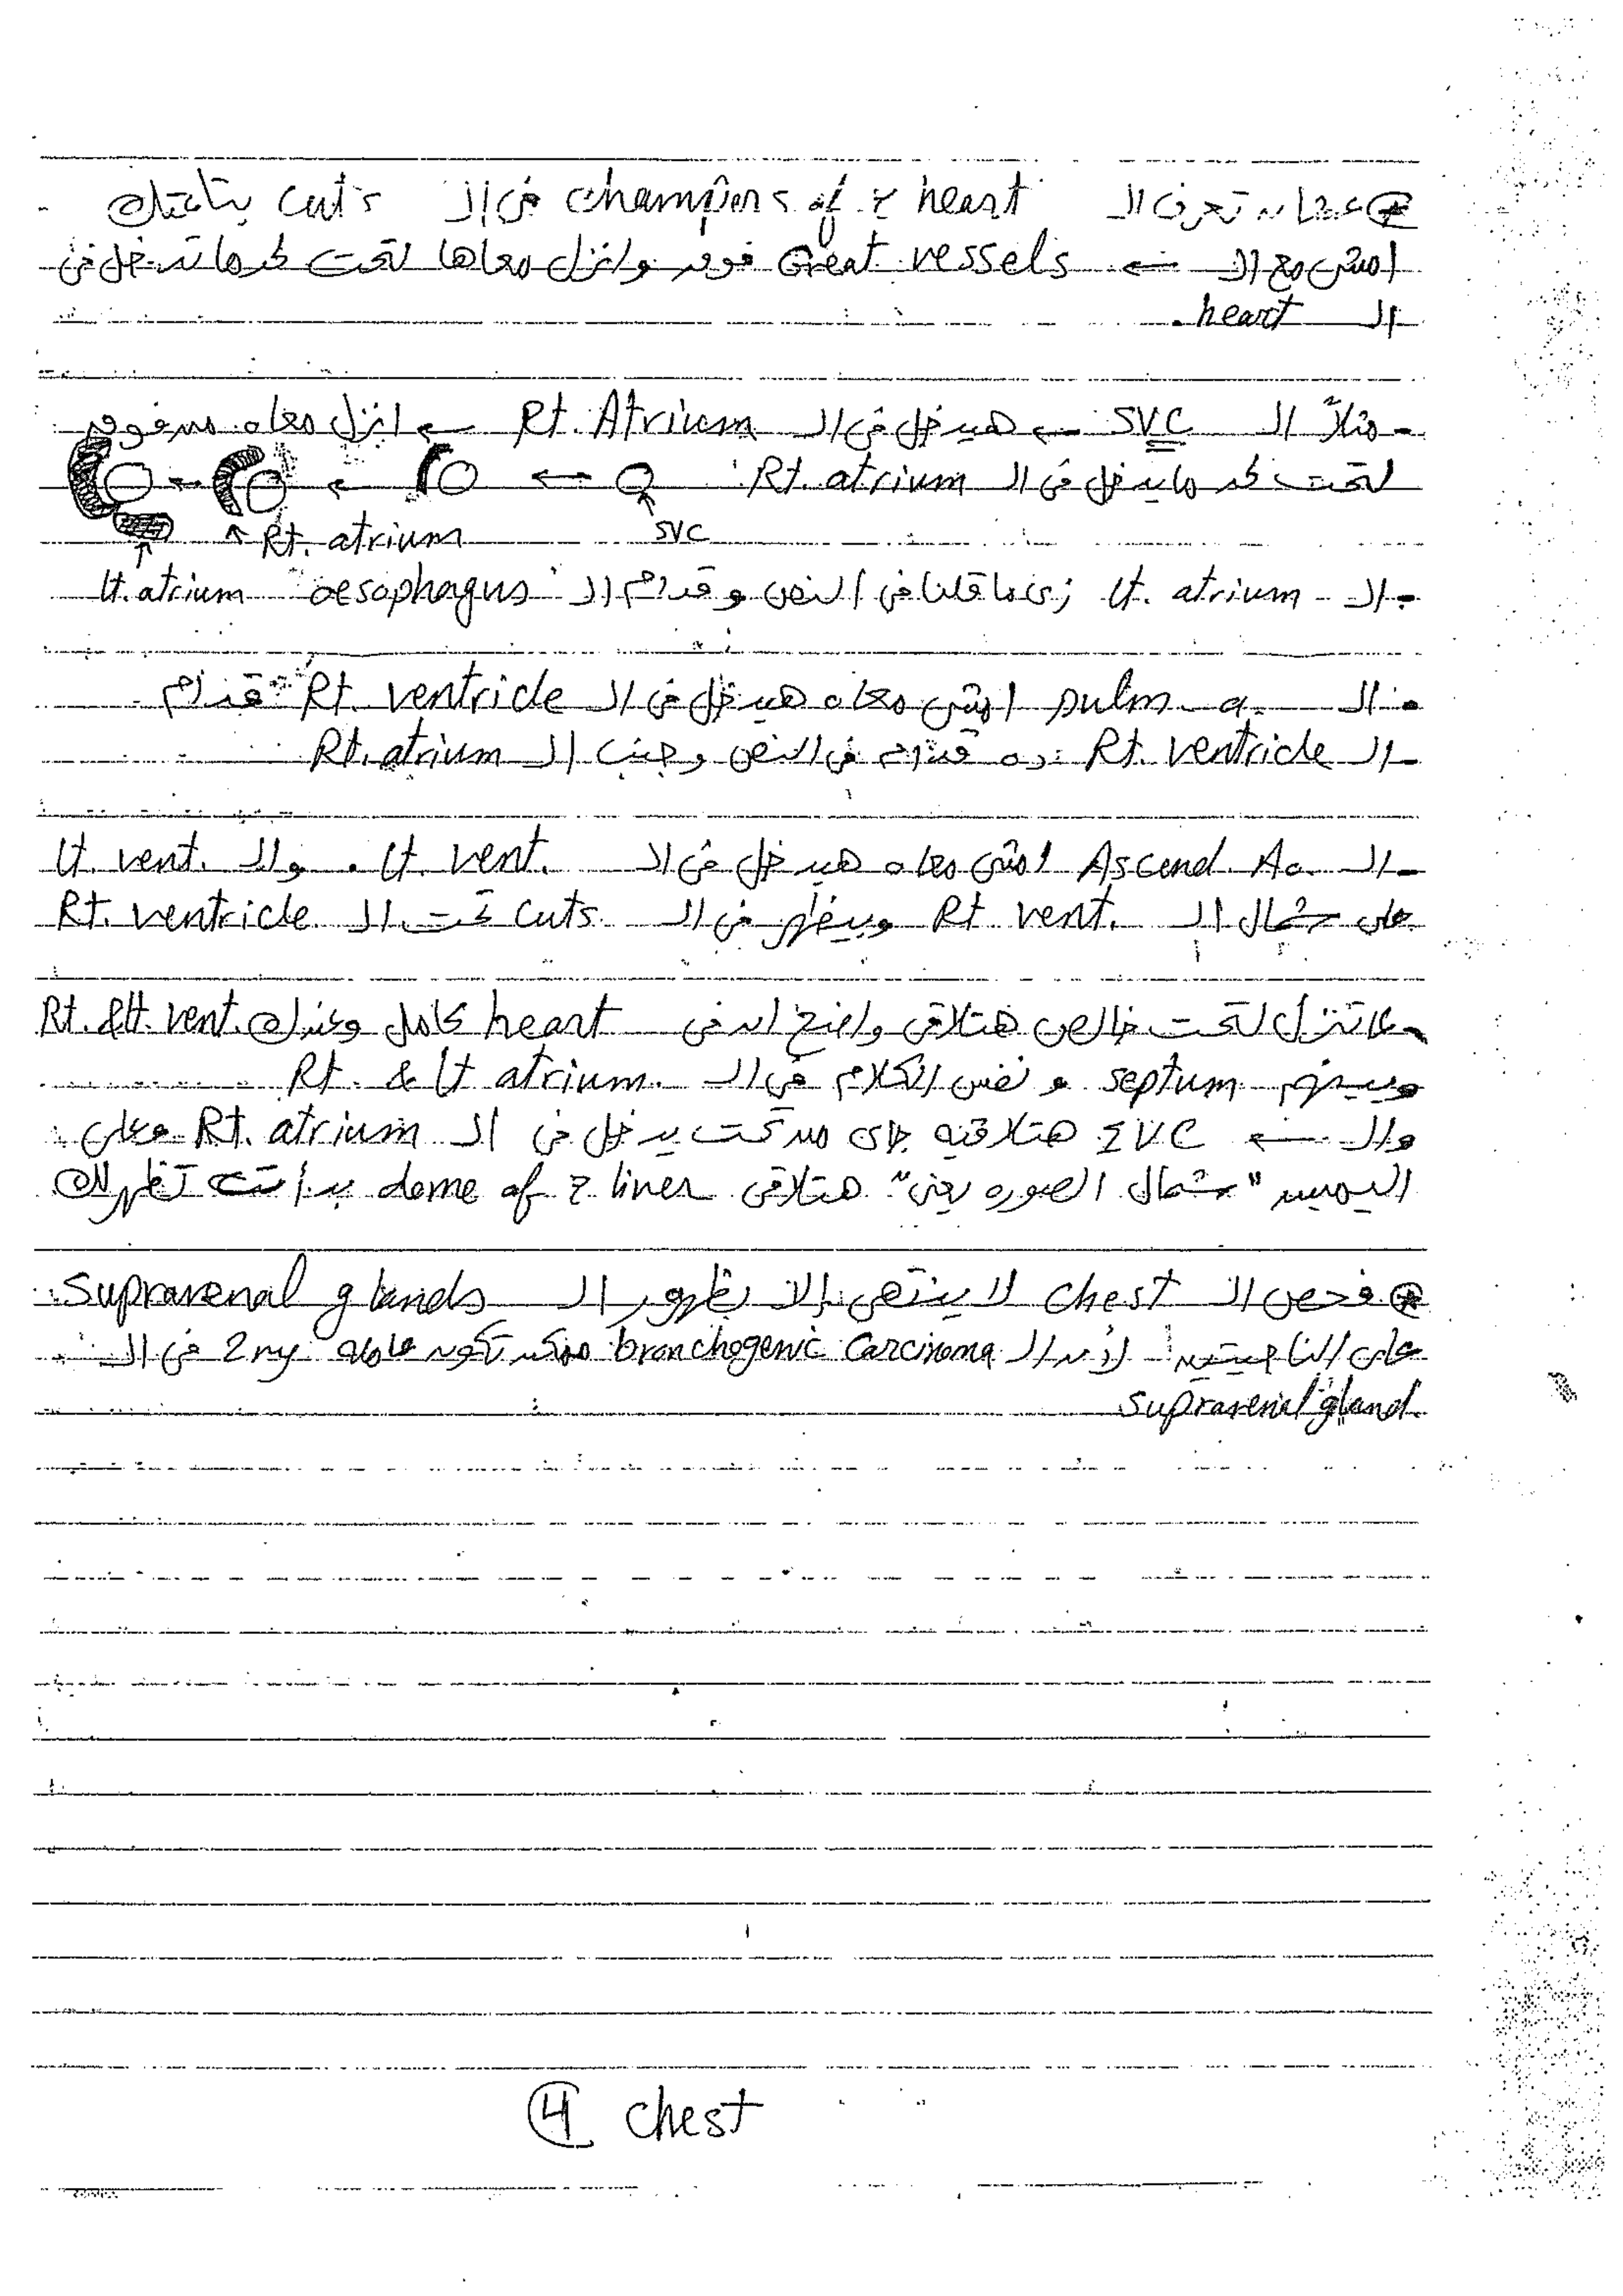 ⊛ عشان تعرف الـ champers of the heart فى الـ cuts بتاعتك
امشى مع الـ ← Great vessels فوق وانزل معاها لتحت لحد ماتدخل فى
الـ heart.
- مثلاً الـ SVC ← هيدخل فى الـ Rt. Atrium ← انزل معاه من فوق
لتحت لحد مايدخل فى الـ Rt. atrium:
SVC
Rt. atrium
- الـ Lt. atrium زى ما قلنا فى النص وقدام الـ oesophagus
Lt. atrium
- الـ pulm. a. امشى معاه هيدخل فى الـ Rt. ventricle قدام
- الـ Rt. ventricle ده قدام فى النص وجنب الـ Rt. atrium
- الـ Ascend. Ao. امشى معاه هيدخل فى الـ Lt. vent. والـ Lt. vent.
على شمال الـ Rt vent. وبيظهر فى الـ cuts تحت الـ Rt. ventricle
- لما تنزل لتحت خالص هتلاقى واضح اوى heart كامل وعندك Rt. & Lt. vent.
وبينهم septum ونفس الكلام فى الـ Rt. & Lt atrium.
والـ ← IVC هتلاقيه جاى من تحت يدخل فى الـ Rt. atrium وعلى
اليمين "شمال الصوره يعنى" هتلاقى dome of the liver بدأت تظهرلك
⊛ فحص الـ chest لا ينتهى إلا بظهور الـ Suprarenal glands
على الناحيتين لأن الـ bronchogenic Carcinoma ممكن تكون عامله 2ry فى الـ
suprarenal gland.
④ chest